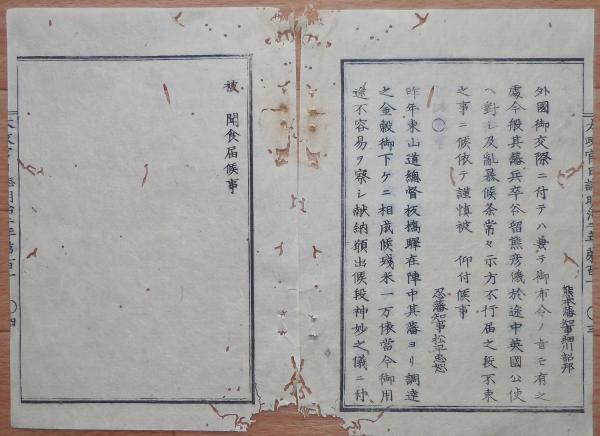 太政官日誌明治二年第百一 〇三
熊本藩知事細川韶邦
外國御交際ニ付テハ兼テ御布令ノ旨モ有之
處今般其藩兵卒谷留熊彦儀於途中英國公使
ヘ對シ及亂暴候条常々示方不行届之段不束
之事ニ候依テ謹慎被 仰付候事
忍藩知事松平忠恕
昨年東山道總督板橋驛在陣中其藩ヨリ調達
之金穀御下ケニ相成候殘米一万俵當今御用
途不容易ヲ察シ献納願出候段神妙之儀ニ付
被 聞食届候事
〇四